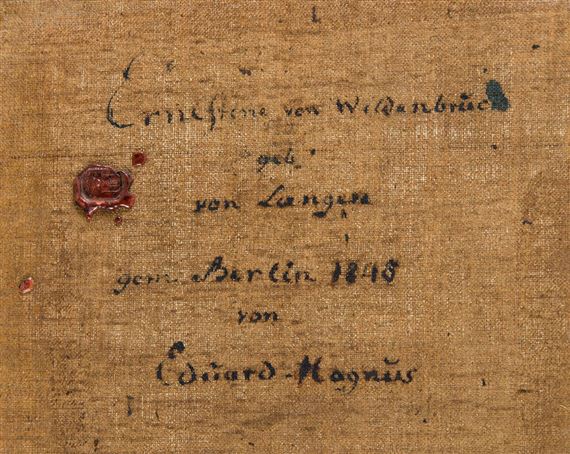 Ernestine von Wildenbruc
geb
von Langen
gem. Berlin 1845
von
Eduard-Magnus